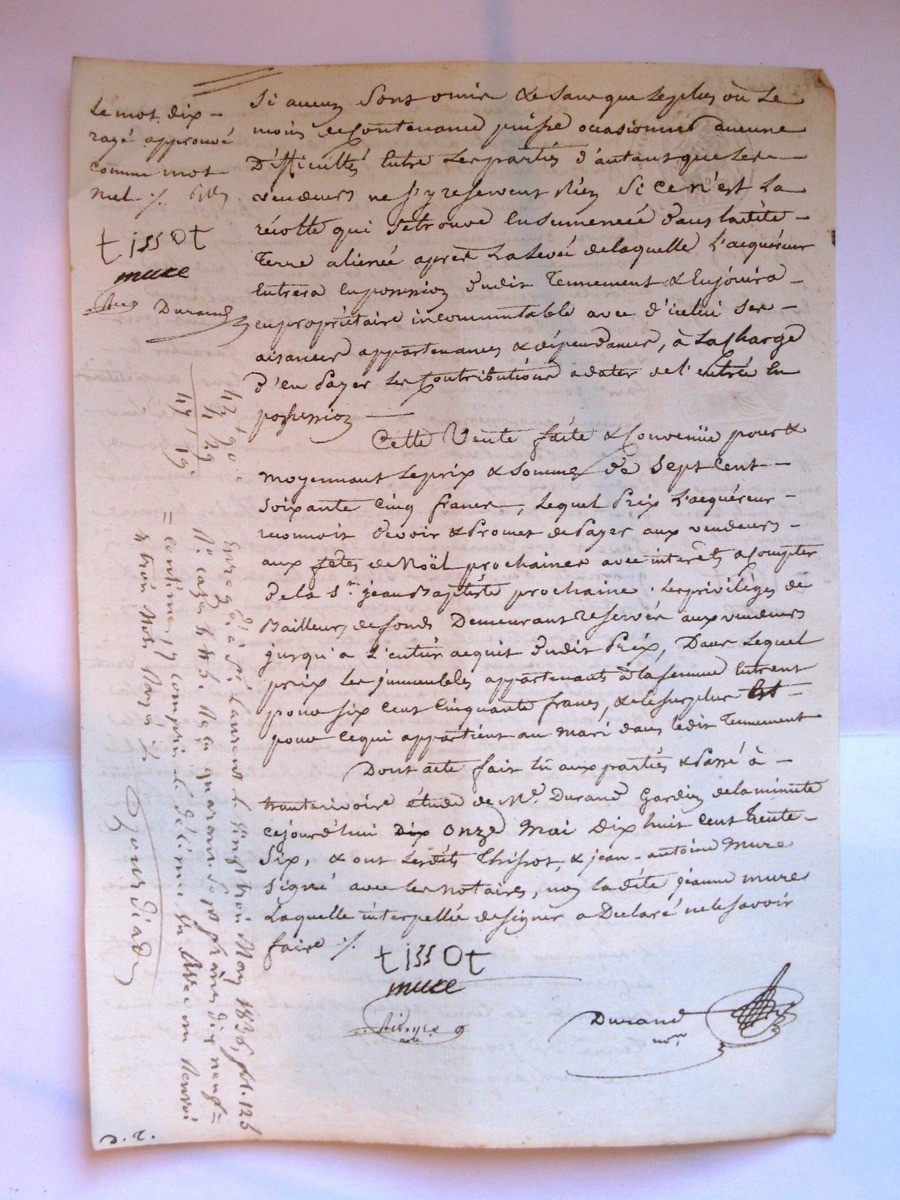 Le mot dix
rayé approuvé
comme mot
nul ./.
tissot
mure
Durand
si aucuns sont omis & sans que le plus ou le
moins de contenance puisse ocasionner aucune
difficultés entre les parties d'autant que les
vendeurs ne s'y reservent rien si ce n'est la
récolte qui se trouve ensemencée dans la dite
terre alienée après la levée de laquelle l'acquéreur
entrera en possession dudit tennement & en jouira
en propriétaire incommutable avec d'icelui ses
aisances appartenances & dépendances, à la charge
d'en payer les contributions a dater de l'entrée en
possession
Cette Vente faite & Convenüe pour &
moyennant le prix & somme de sept cent
soixante cinq francs, lequel prix l'acquéreur
reconnoit devoir & promet de payer aux vendeurs
aux fêtes de Noël prochaines avec intérêts a compter
de la St. jean Baptiste prochaine. Les priviléges de
Bailleurs de fonds demeurant reservés aux vendeurs
jusqu'a l'entier acquit dudit Prix, Dans lequel
prix les immeubles appartenant à la femme entrent
pour six cent cinquante francs, & le surplus est
pour ce qui appartient au mari dans ledit tennement
Dont acte fait lu aux parties & Passé à
étude de Me. Durand Gardien de la minute
cejourd'hui dix onze mai dix huit cent trente
six, & ont lesdits Thissot, & jean-antoine Mure
signé avec les notaires, non la dite jeanne mure
Laquelle interpellée de signer a Déclaré ne le savoir
faire ./.
tissot
mure
Durand
nore
42 90
4 29
47 19
Enregé. à St. Laurent le vingt trois May 1836 fol. 125
No. case 4 reçu quarante sept francs dix neuf
centimes y compris le décime